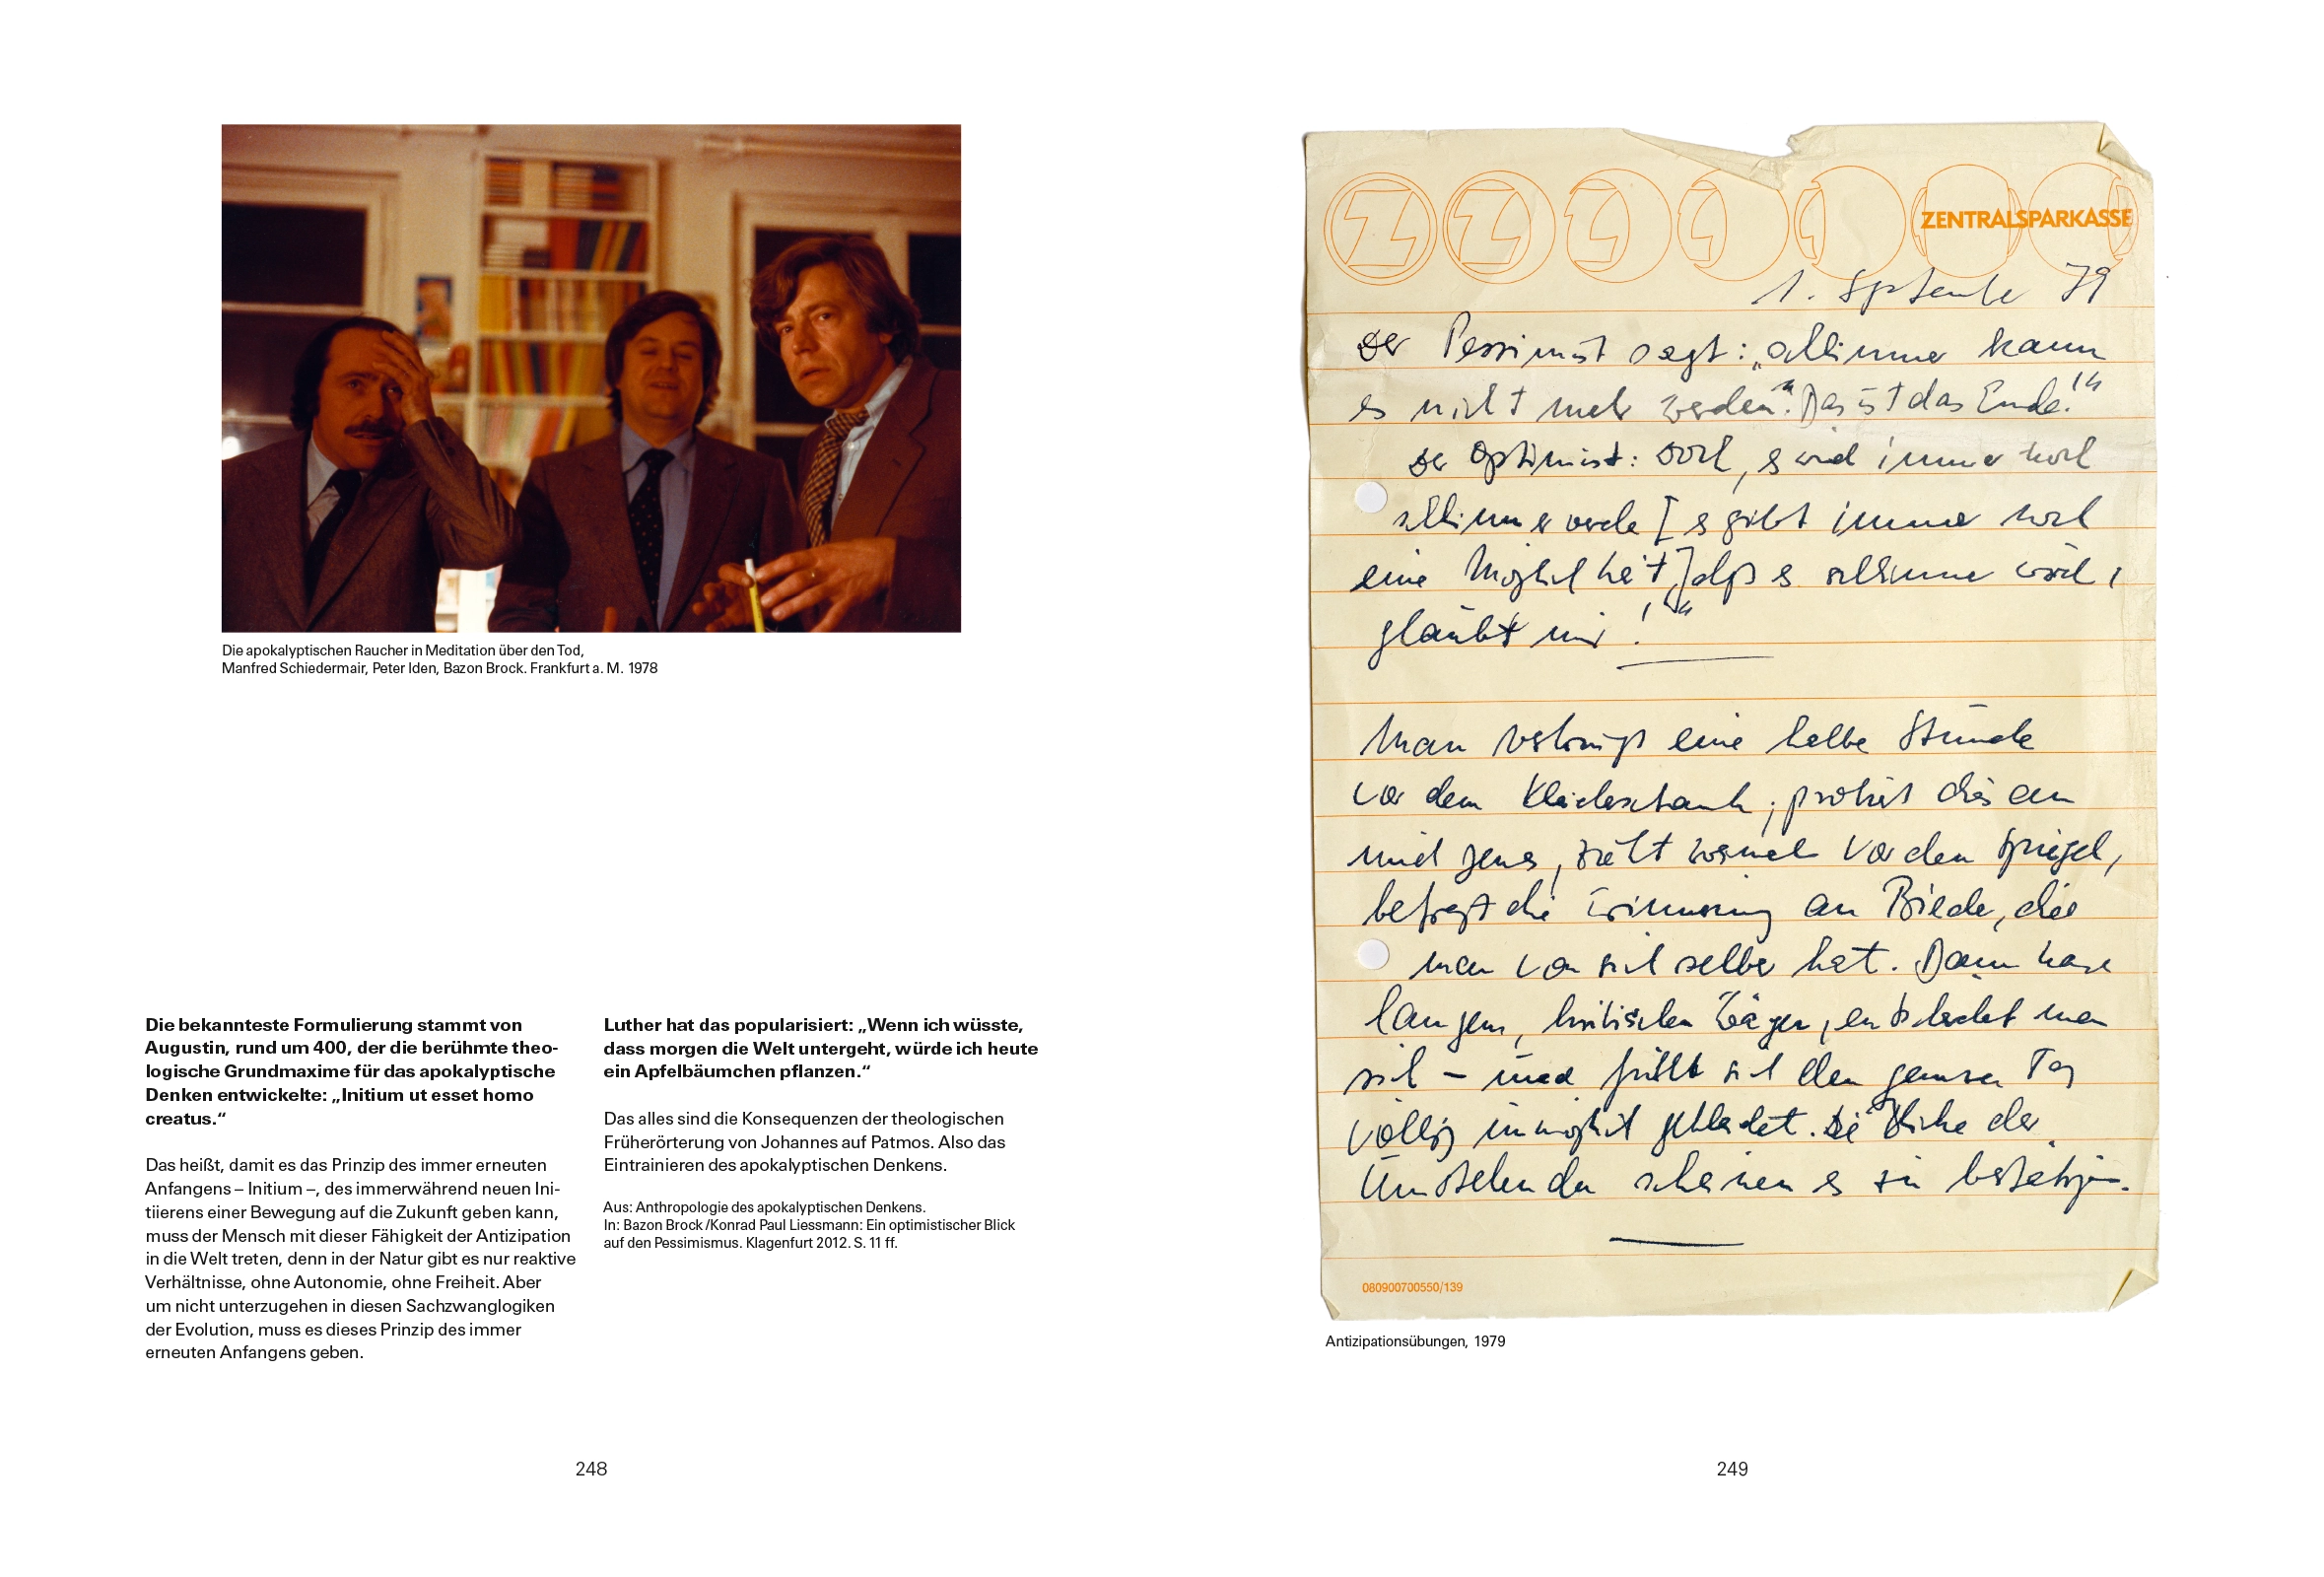 Die apokalyptischen Raucher in Meditation über den Tod,
Manfred Schiedermair, Peter Iden, Bazon Brock. Frankfurt a. M. 1978
Die bekannteste Formulierung stammt von
Augustin, rund um 400, der die berühmte theo-
logische Grundmaxime für das apokalyptische
Denken entwickelte: „Initium ut esset homo
creatus.“
Das heißt, damit es das Prinzip des immer erneuten
Anfangens – Initium –, des immerwährend neuen Ini-
tiierens einer Bewegung auf die Zukunft geben kann,
muss der Mensch mit dieser Fähigkeit der Antizipation
in die Welt treten, denn in der Natur gibt es nur reaktive
Verhältnisse, ohne Autonomie, ohne Freiheit. Aber
um nicht unterzugehen in diesen Sachzwanglogiken
der Evolution, muss es dieses Prinzip des immer
erneuten Anfangens geben.
Luther hat das popularisiert: „Wenn ich wüsste,
dass morgen die Welt untergeht, würde ich heute
ein Apfelbäumchen pflanzen.“
Das alles sind die Konsequenzen der theologischen
Früherörterung von Johannes auf Patmos. Also das
Eintrainieren des apokalyptischen Denkens.
Aus: Anthropologie des apokalyptischen Denkens.
In: Bazon Brock /Konrad Paul Liessmann: Ein optimistischer Blick
auf den Pessimismus. Klagenfurt 2012. S. 11 ff.
248
ZENTRALSPARKASSE
1. September 79
Der Pessimist sagt: „schlimmer kann
es nicht mehr werden“. Das ist das Ende!“
Der Optimist: Doch, es wird immer noch
schlimmer werden [es gibt immer noch
eine Möglichkeit,] daß es schlimmer wird,
glaubt mir!“
Man verbringt eine halbe Stunde
vor dem Kleiderschrank, probiert dies an
und jenes, vor den Spiegel,
befragt die Erinnerung an Bilder, die
man von sich selber hat. Dann nach
langem, kritischen Zögern, entscheidet man
sich – und fühlt sich den ganzen Tag
völlig unmöglich gekleidet. Die Blicke der
Umstehenden scheinen es zu bestätigen.
080900700550/139
Antizipationsübungen, 1979
249